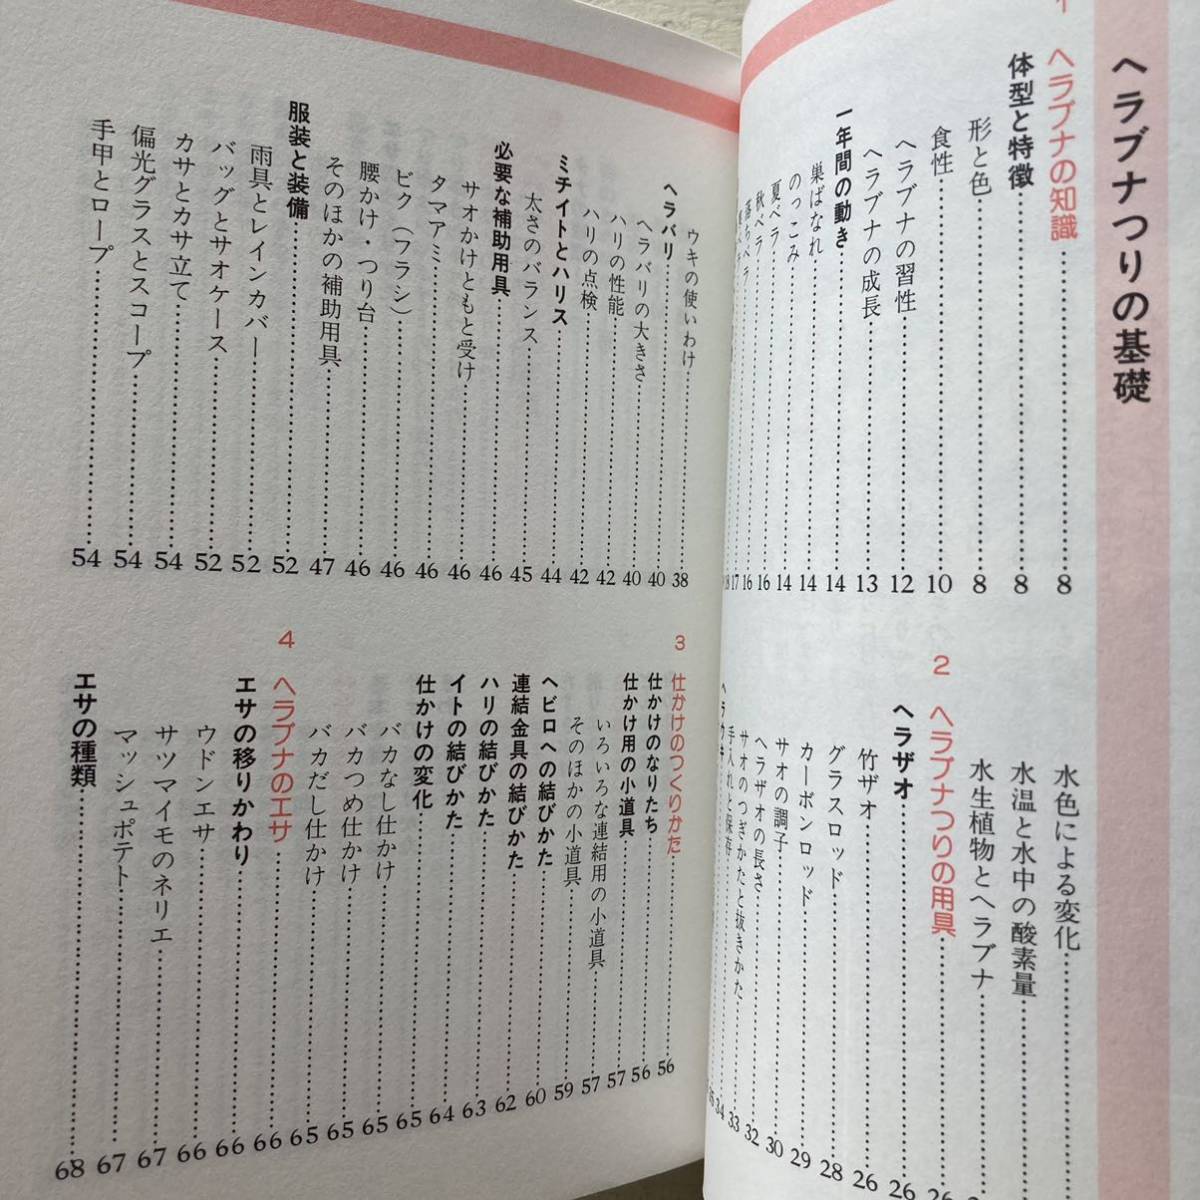 ヘラブナつりの基礎
1
ヘラブナの知識……8
体型と特徴……8
形と色……8
食性……10
ヘラブナの習性……12
ヘラブナの成長……13
一年間の動き……14
巣ばなれ……14
のっこみ……14
夏ベラ……16
秋ベラ……16
落ちベラ……17
水色による変化
水温と水中の酸素量
水生植物とヘラブナ
2
ヘラブナつりの用具……26
ヘラザオ……26
竹ザオ……26
グラスロッド……28
カーボンロッド……29
サオの調子……30
ヘラザオの長さ……32
サオのつぎかたと抜きかた……33
手入れと保存……34
ウキの使いわけ……38
ヘラバリ……40
ヘラバリの大きさ……40
ハリの性能……42
ハリの点検……42
ミチイトとハリス……44
太さのバランス……45
必要な補助用具……46
サオかけともと受け……46
タマアミ……46
ビク（フラシ）……46
腰かけ・つり台……46
そのほかの補助用具……47
服装と装備……52
雨具とレインカバー……52
バッグとサオケース……52
カサとカサ立て……54
偏光グラスとスコープ……54
手甲とロープ……54
3
仕かけのつくりかた……56
仕かけのなりたち……56
仕かけ用の小道具……57
いろいろな連結用の小道具……57
そのほかの小道具……59
ヘビロへの結びかた……60
連結金具の結びかた……62
ハリの結びかた……63
イトの結びかた……64
仕かけの変化……65
バカなし仕かけ……65
バカつめ仕かけ……65
バカだし仕かけ……65
4
ヘラブナのエサ……66
エサの移りかわり……66
ウドンエサ……66
サツマイモのネリエ……67
マッシュポテト……67
エサの種類……68